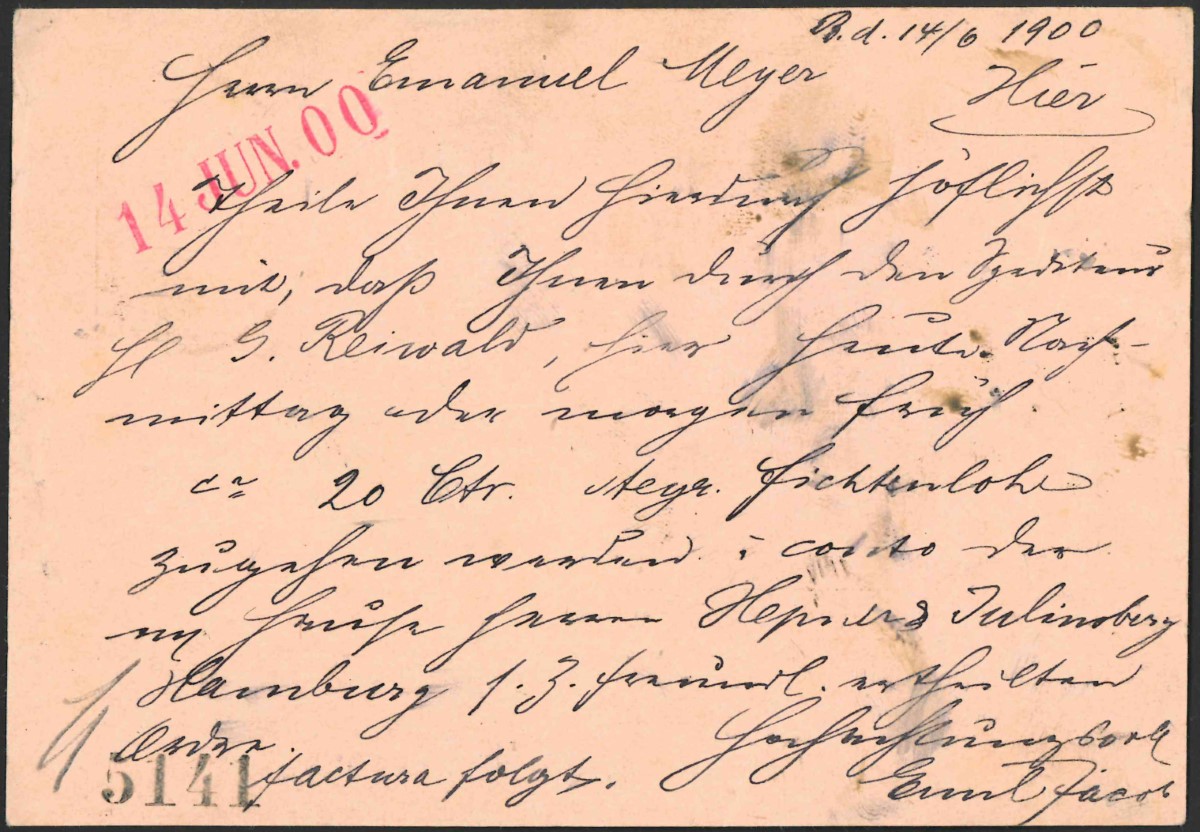 B. d. 14/6 1900
Herrn Emanuel Meyer Hier
14 JUN. 00
Theile Ihnen hierdurch höflichst
mit, daß Ihnen durch den Spediteur
H G. Reiwald, hier heute Nach-
mittag oder morgen früh
ca 20 Ctr. steyr. Fichtenlohe
zugehen werden à conto der
an Herren Hepner & Juliusberg
Hamburg s. Z. freundl. ertheilten
Ordre.
Hochachtungsvoll
factura folgt.
Emil Jacob
5141